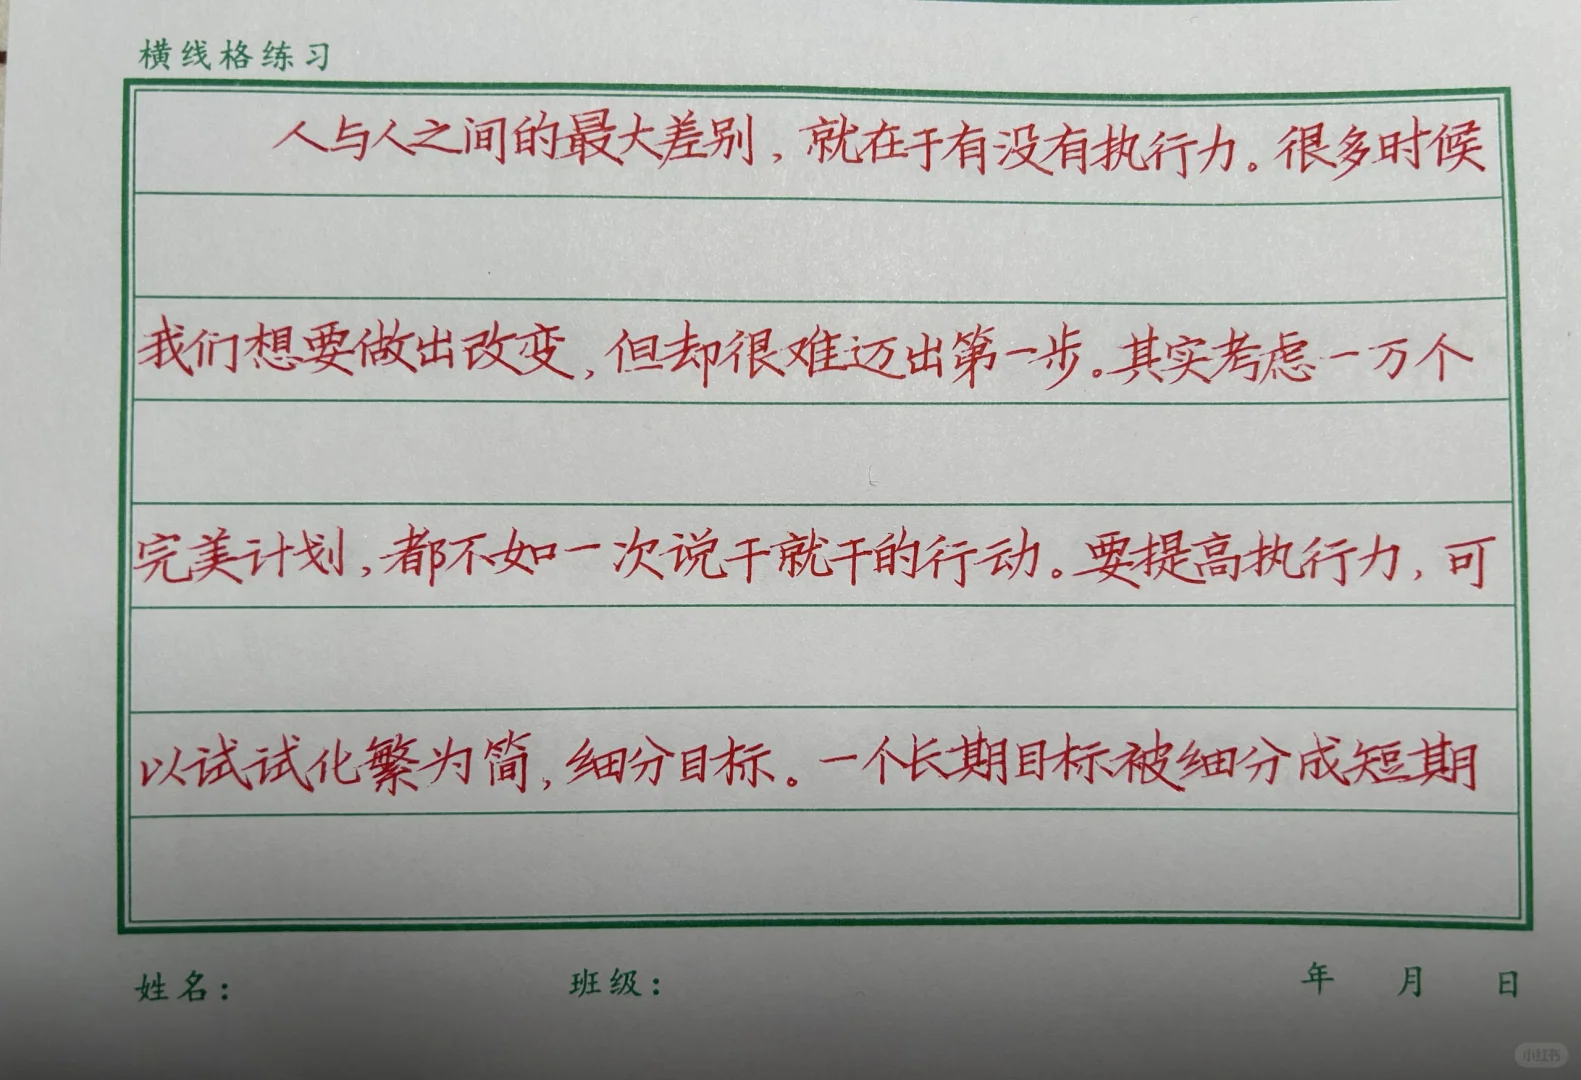 横线格练习
人与人之间的最大差别，就在于有没有执行力。很多时候
我们想要做出改变，但却很难迈出第一步。其实考虑一万个
完美计划，都不如一次说干就干的行动。要提高执行力，可
以试试化繁为简，细分目标。一个长期目标被细分成短期
姓名： 班级： 年 月 日
小红书